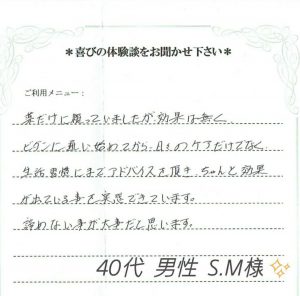 *喜びの体験談をお聞かせ下さい*
ご利用メニュー:
薬だけに頼っていましたが効果は無く
に通い始めてから、日々のケアだけでなく
生活習慣にまでアドバイスを頂き、ちゃんと効果
が出ている事を実感できています。
諦めない事が大事だと思います。
40代 男性 S.M様